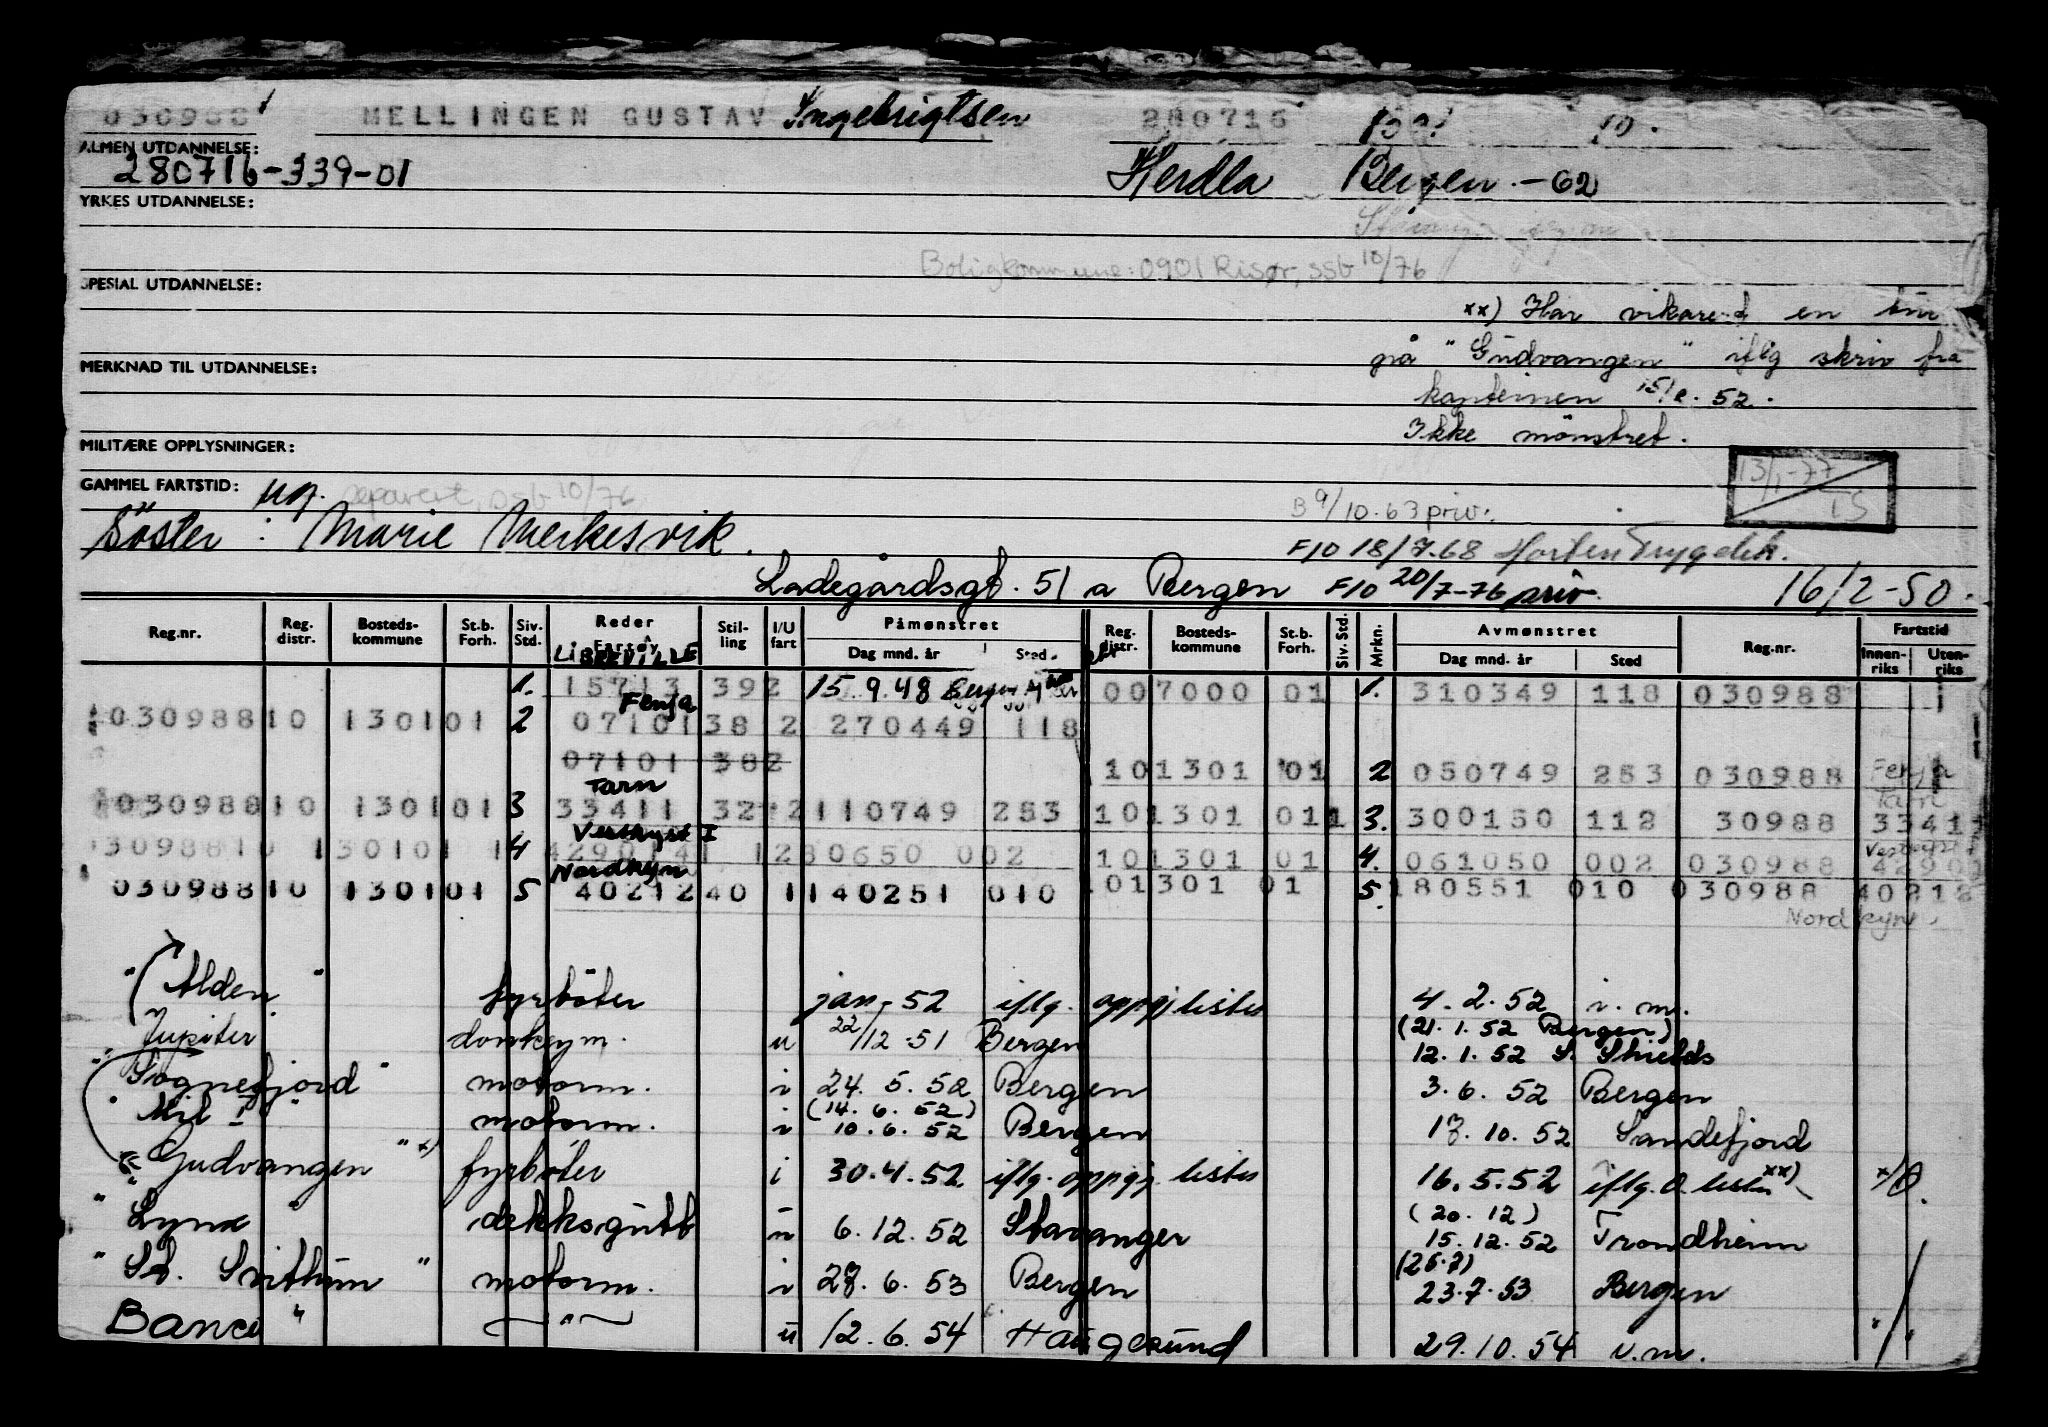 030988 MELLINGEN GUSTAV Ingebrigtsen 280716
ALMEN UTDANNELSE:
280716-339-01 Herdla Bergen - 62
YRKES UTDANNELSE:
Boligkommune: 0901 Risør, ssb 10/76
SPESIAL UTDANNELSE:
xx) Har vikariert en tur
på "Gudvangen" iflg skriv fra
MERKNAD TIL UTDANNELSE:
kapteinen 15/ 52.
Ikke mönstret.
MILITÆRE OPPLYSNINGER:
13/1-77
IS
GAMMEL FARTSTID: ug. separert, ssb 10/76
B 9/10-63 priv.
Söster: Marie Merkesvik.
F/O 18/7.68 Horten Trygdek.
Ladegårdsgt. 51 a Bergen F/O 20/7-76 priv. 16/2-50.
Reg.nr. Reg. distr. Bosteds-kommune St.b. Forh. Siv. Std. Reder Fartøy Stil-ling I/U fart Påmønstret Reg. distr. Bosteds-kommune St.b. Forh. Siv. Std. Mrkn. Avmønstret Reg.nr. Fartstid
Dag mnd. år Sted Dag mnd. år Sted Innen-riks Uten-riks
LIBREVILLE
1. 15713 392 15.9.48 007000 01 1. 310349 118 030988
Fenja
030988 10 1301 01 2 07101 38 2 270449 118
07101 382 10 1301 01 2 050749 253 030988 Fenja
Tarn
030988 10 1301 01 3 33411 32 2 110749 253 10 1301 01 1 3. 300150 112 30988 Tarn 33411
Vestkyst I
30988 10 1301 01 1 4 42901 41 1 280650 002 10 1301 01 4. 061050 002 030988 Vestkyst I
Nordkyn
030988 10 1301 01 5 40212 40 1 140251 010 101301 01 5. 180551 010 030988 40212
Nordkyn
"Alden" fyrböter jan- 52 iflg. oppgj lister 4. 2. 52 i. m.
Jupiter donkeym. u 22/12-51 Bergen (21. 1. 52 Bergen)
12. 1. 52 S. Shields
"Sognefjord" motorm. i 24. 5. 52 Bergen 3. 6. 52 Bergen
"Mil I" motorm. i (14. 6. 52) 10. 6. 52 Bergen 17. 10. 52 Sandefjord
"Gudvangen" x) fyrböter i 30.4.52 iflg. oppgj. lister 16. 5. 52 iflg. O. lister xx) x/0.
"Lynx" dekksgutt u 6. 12. 52 Stavanger (20. 12) 15. 12. 52 Trondheim
"St. Svithun" motorm. i 28. 6. 53 Bergen 23. 7. 53 Bergen
Banco " — " — u 12. 6. 54 Haugesund 29. 10. 54 u.m.